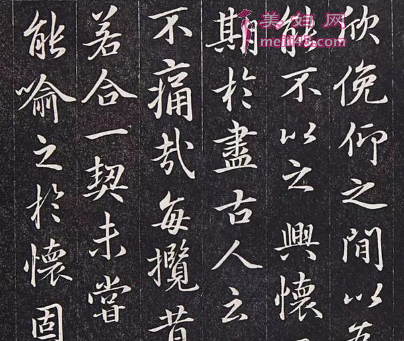 欣俛仰之間以為
能不以之興懷
期於盡古人云
不痛哉每攬昔
若合一契未嘗
能喻之於懷固
美妞网
meili48.com